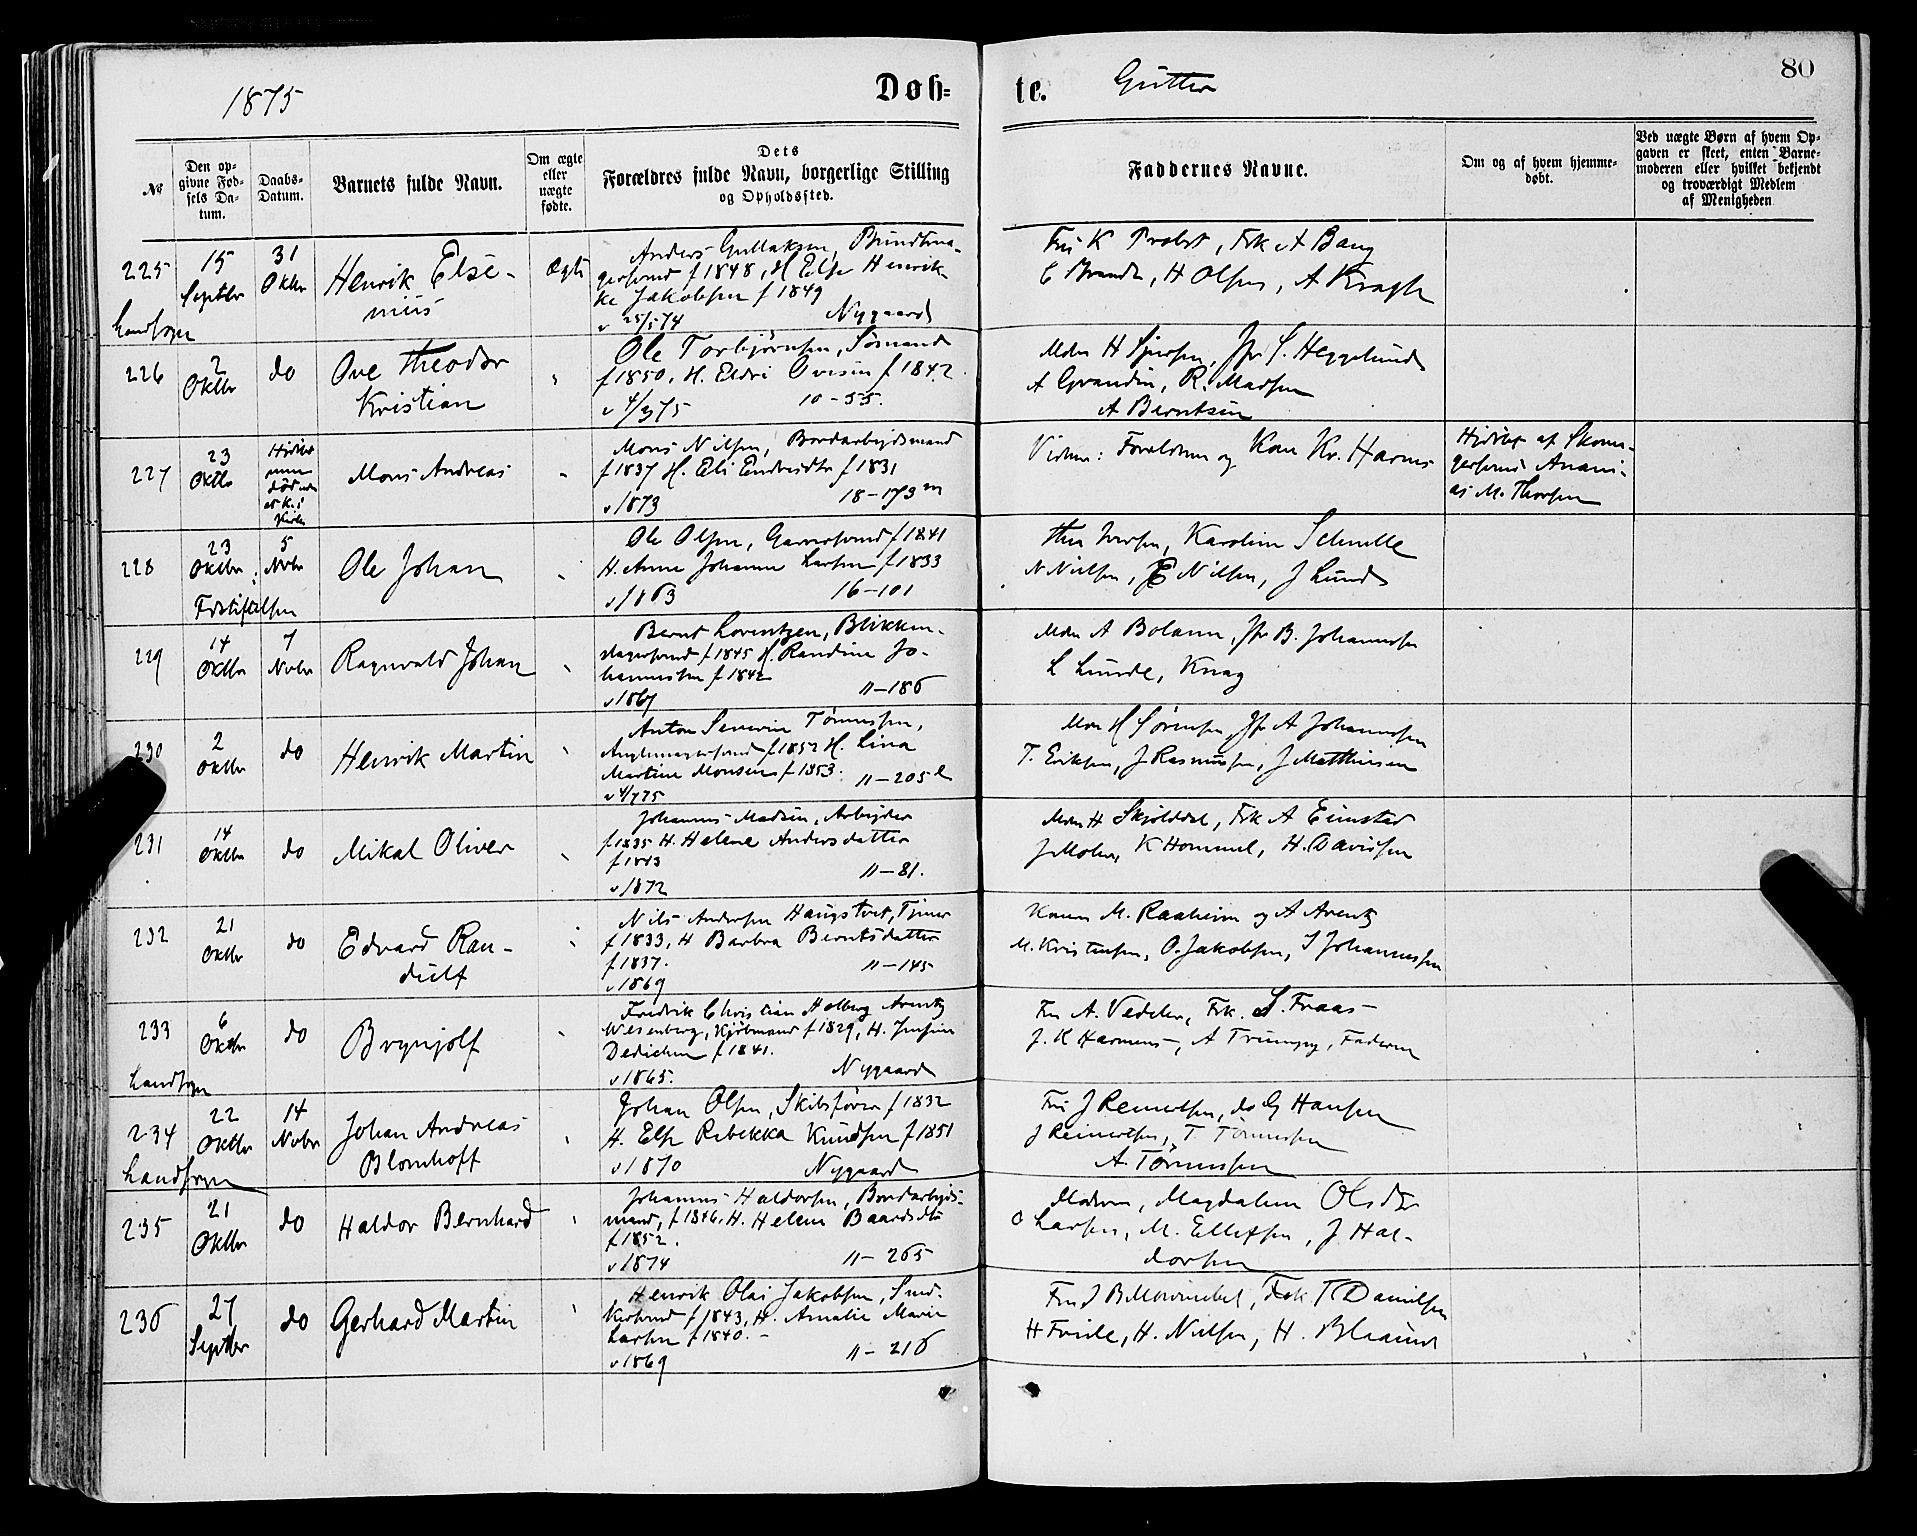 1875
Døb-
te.
Gutter
80
No
Den opgivne Fødsels Datum.
Daabs-Datum.
Barnets fulde Navn.
Om ægte eller uægte fødte.
Dets Forældres fulde Navn, borgerlige Stilling og Opholdssted.
Faddernes Navne.
Om og af hvem hjemmedøbt.
Ved uægte Børn af hvem Opgaven er skeet, enten Barnemoderen eller hvilket bekjendt og troværdigt Medlem af Menigheden
225
Landsogn
15
Septbr
31
Oktbr
Henrik Else-
nius
Ægte
Anders Gullaksen, Buntma-
gersvend f 1848, H Else Henrik-
ke Jakobsen f 1849
v 25/5 74 Nygaard
Fru K Probst, Frk A Bang
C Brandt, H Olsen, A Kragh
226
2
Oktbr
do
Ove Theodor
Kristian
"
Ole Torbjørnsen, Sømand
f 1850, H. Eldri Ovisin f 1842
v 4/3 75 10-55.
A Grandin, R. Madsen
A Berntsen
227
23
Oktbr
Mons Andreas
"
Mons Nilsen, Bordarbejdsmand
f 1837 H. Eli Endresdtr f 1831
v 1873 18-173 m
Vidner: Forældrene og Kone Kr. Harms
Hjdøbt af Skoma-
gersvend Anani-
as M. Thorsen
228
23
Oktbr
Fdstiftelsen
5
Novbr
Ole Johan
"
Ole Olsen, Garversvend f 1841
H. Anne Johanne Larsen f 1833
v 1863 16-101
Karoline Schnelle
N Nielsen, E Nilsen, J Lund
229
14
Oktbr
7
Novbr
Ragnvald Johan
"
Bernt Lorentzen, Blikken-
slagersvend f 1845 H. Randine Jo-
hannesen f 1842
v 1867 11-186
Mdm A Bolann, Jfr B. Johannesen
L Lunde, Knag
230
2
Oktbr
do
Henrik Martin
"
Anton Severin Tønnesen,
f 1852 H. Lina
Martine Monsen f 1853.
v 4/7 75 11-205 e
Mdm H Sørensen, Jfr A Johannesen
T. Eriksen, J Rasmussen, J Matthiesen
231
14
Oktbr
do
Mikal Oliver
"
Johannes Madsen, Arbejder
f 1835 H. Helene Andersdatter
f 1843
v 1872 11-81.
Mdm H Skjolddal, Frk A Eimstad
J Mohr, K Hommel, H. Davidsen
232
21
Oktbr
do
Edvard Ran-
dulf
"
Nils Andersen Haugstvet, Tjener
f 1833, H Barbra Berntsdatter
f 1837.
v 1869 11-145
Konen M. Raaheim og A Arentz
M. Kristensen, O. Jakobsen, J Johannessen
233
Landsogn
6
Oktbr
do
Brynjolf
"
Fredrik Christian Holberg Arentz
Wesenberg, Kjøbmand f 1829, H. Josefine
Dedichen f 1841.
v 1865. Nygaard
Fru A. Vedeler, Frk. S. Fraas
J. K Harmens, A Trumpy, Faderen
234
Landsogn
22
Oktbr
14
Novbr
Johan Andreas
Blomhoff
"
Johan Olsen, Skibsfører f 1832
H. Else Rebekka Knudsen f 1851
v 1870 Nygaard
Fru J Reinertsen, do G Hansen
J Reinertsen, T Tönnessen
A. Tönnessen
235
21
Oktbr
do
Haldor Bernhard
"
Johannes Haldorsen, Bordarbejds-
mand, f 1846. H. Helene Baardsdtr
f 1852.
v 1874 11-265
Moderen, Magdalene Olsdtr
O Larsen, M. Ellefsen, J Hal-
dorsen
236
27
Septbr
do
Gerhard Martin
"
Henrik Olai Jakobsen, Sned-
kersvend f 1843, H. Amalie Marie
Larsen f 1840.
v 1869 11-216
Frk T Danielsen
H Friele, H. Nielsen, H. Blaauw